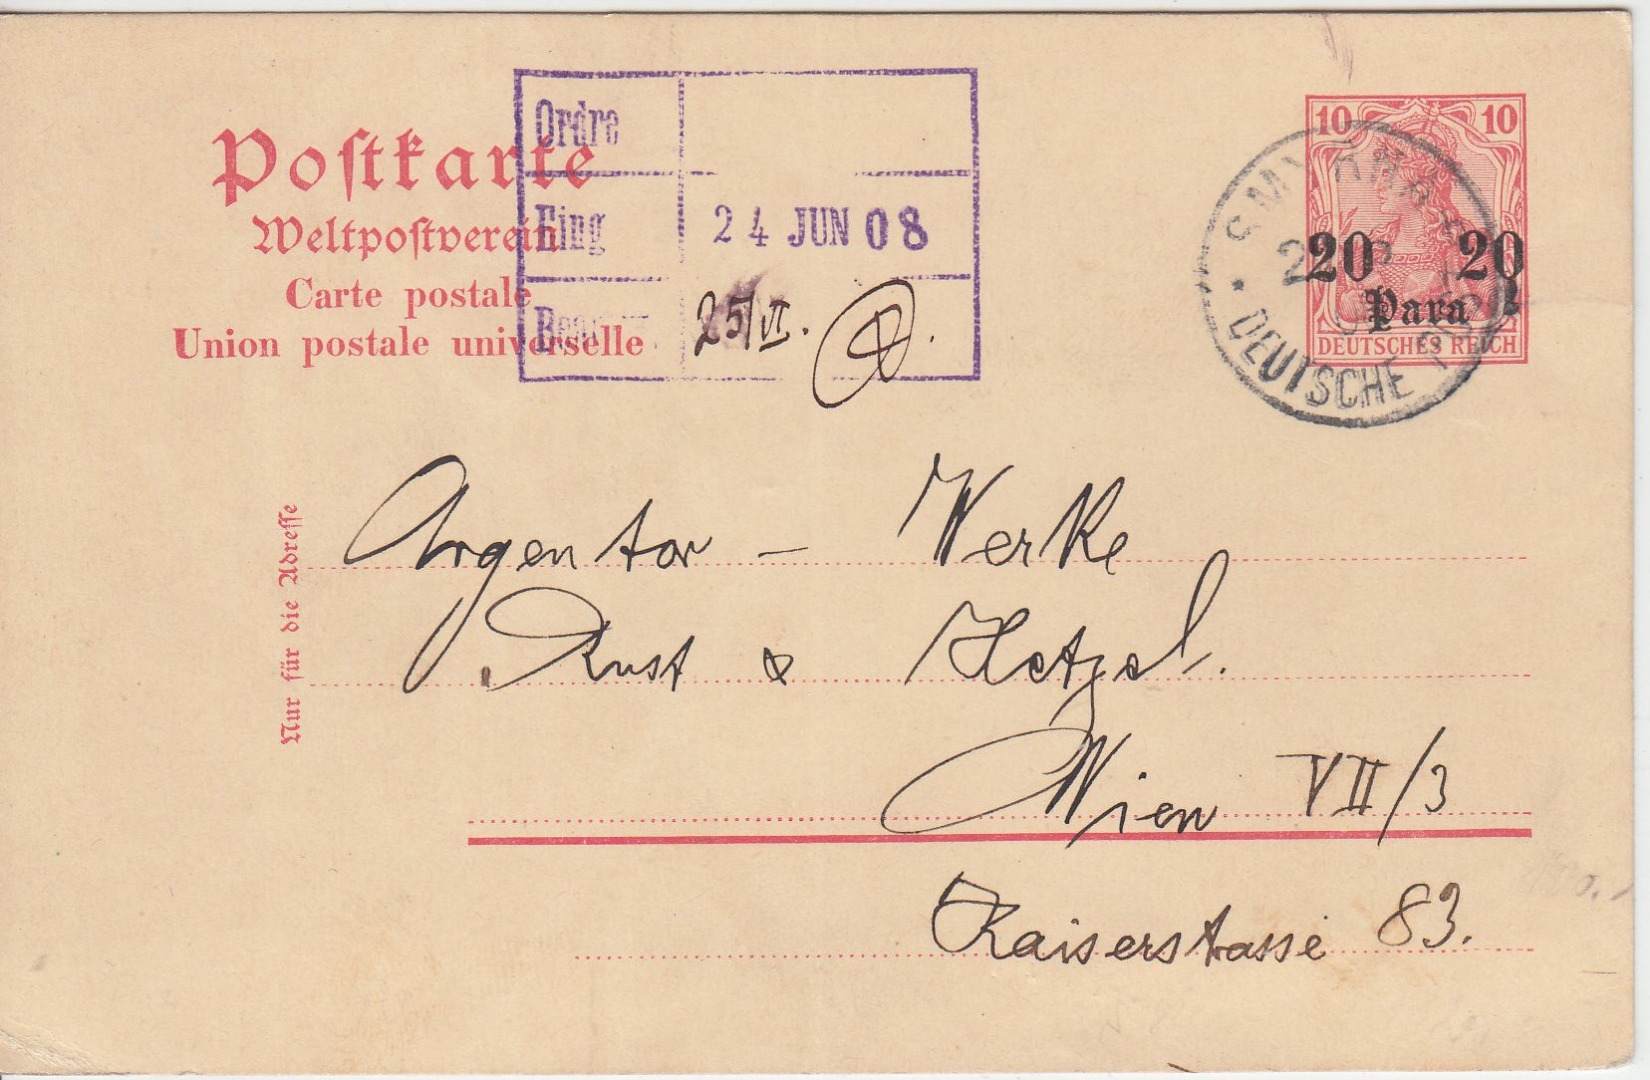 Postkarte
Weltpostverein
Carte postale
Union postale universelle
Nur für die Adresse
Ordre
Eing
24 JUN 08
25/VI.
10 10
20 20
Para
DEUTSCHES REICH
SMYRNA
DEUTSCHE
Argentor – Werke
Rust & Hetzel.
Wien VII/3
Kaiserstasse 83.